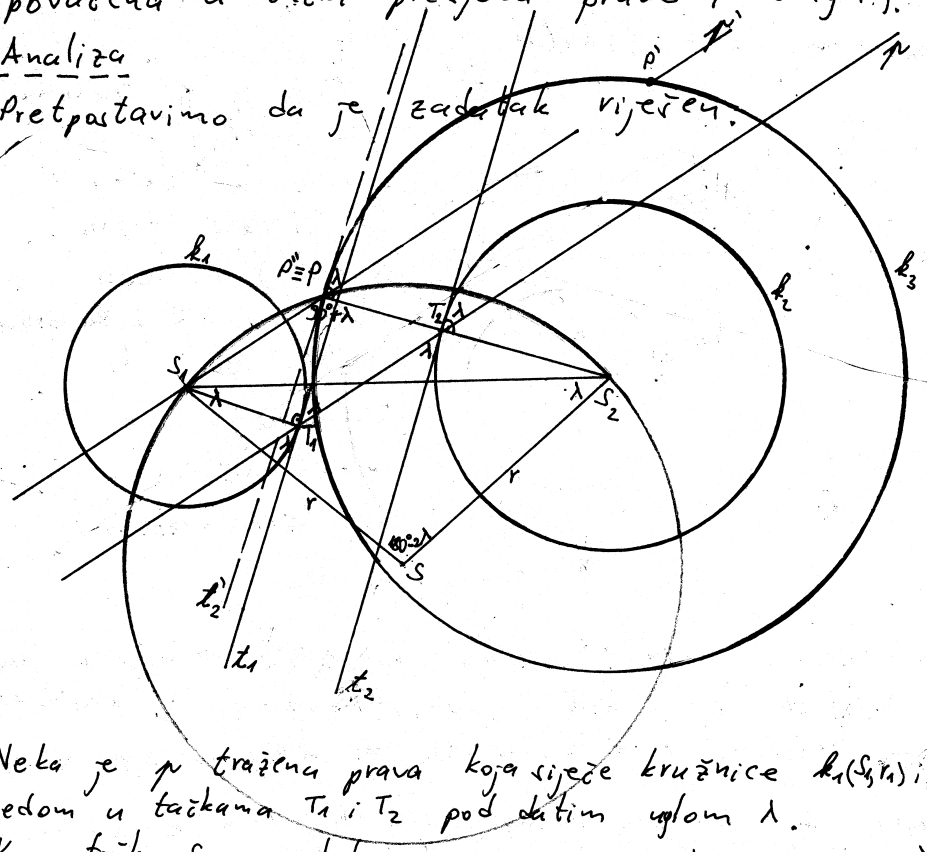 Analiza
Pretpostavimo da je zadatak riješen.
p'
P'
p
k₁
k₃
P''≡P
λ
90°+λ
T₂
λ
k₂
λ
S₁
λ
λ
S₂
T₁
λ
r
r
180°-2λ
S
t₂'
t₁
t₂
Neka je p tražena prava koja siječe kružnice k₁(S₁,r₁) i
edom u tačkama T₁ i T₂ pod datim uglom λ.